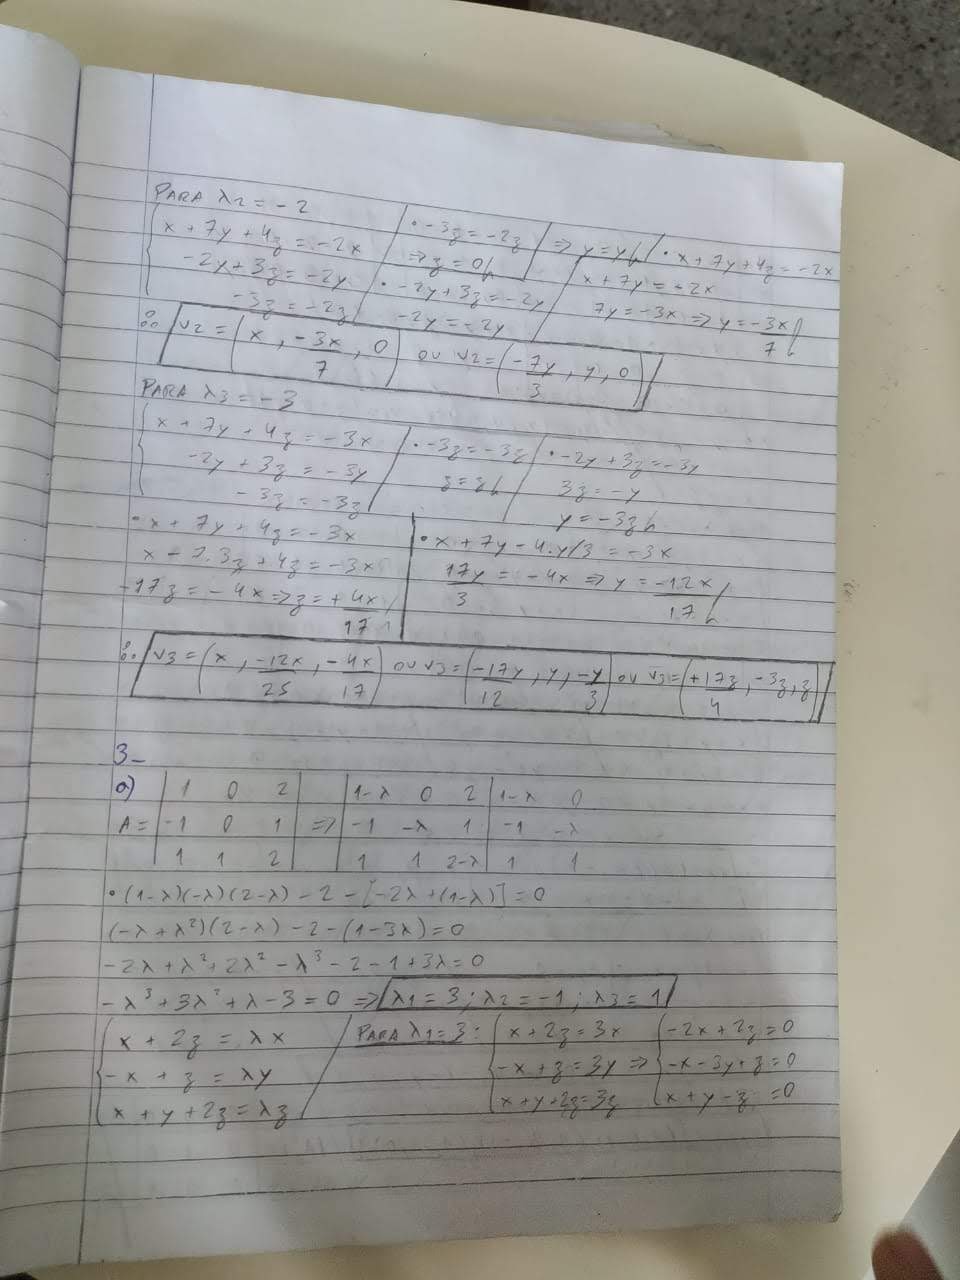 PARA λ2 = -2
x + 7y + 4z = -2x
-2y + 3z = -2y
-3z = -2z
• -3z = -2z
⇒ z = 0
• -2y + 3z = -2y
-2y = -2y
⇒ y = y
• x + 7y + 4z = -2x
x + 7y = -2x
7y = -3x ⇒ y = -3x/7
∴ v2 = (x, -3x/7, 0) OU v2 = (-7y/3, y, 0)
PARA λ3 = -3
x + 7y + 4z = -3x
-2y + 3z = -3y
-3z = -3z
• -3z = -3z
z = z
• -2y + 3z = -3y
3z = -y
y = -3z
• x + 7y + 4z = -3x
x - 7.3z + 4z = -3x
-17z = -4x ⇒ z = +4x/17
• x + 7y - 4.y/3 = -3x
17y/3 = -4x ⇒ y = -12x/17
∴ v3 = (x, -12x/25, -4x/17) OU v3 = (-17y/12, y, -y/3) OU v3 = (+17z/4, -3z, z)
3-
a)
A = | 1 0 2 | ⇒ | 1-λ 0 2 | 1-λ 0
| -1 0 1 | | -1 -λ 1 | -1 -λ
| 1 1 2 | | 1 1 2-λ | 1 1
• (1-λ)(-λ)(2-λ) - 2 - [-2λ + (1-λ)] = 0
(-λ + λ²)(2-λ) - 2 - (1-3λ) = 0
-2λ + λ² + 2λ² - λ³ - 2 - 1 + 3λ = 0
-λ³ + 3λ² + λ - 3 = 0 ⇒ λ1 = 3 ; λ2 = -1 ; λ3 = 1
x + 2z = λx
-x + z = λy
x + y + 2z = λz
PARA λ1 = 3:
x + 2z = 3x
-x + z = 3y ⇒
x + y + 2z = 3z
-2x + 2z = 0
-x - 3y + z = 0
x + y - z = 0